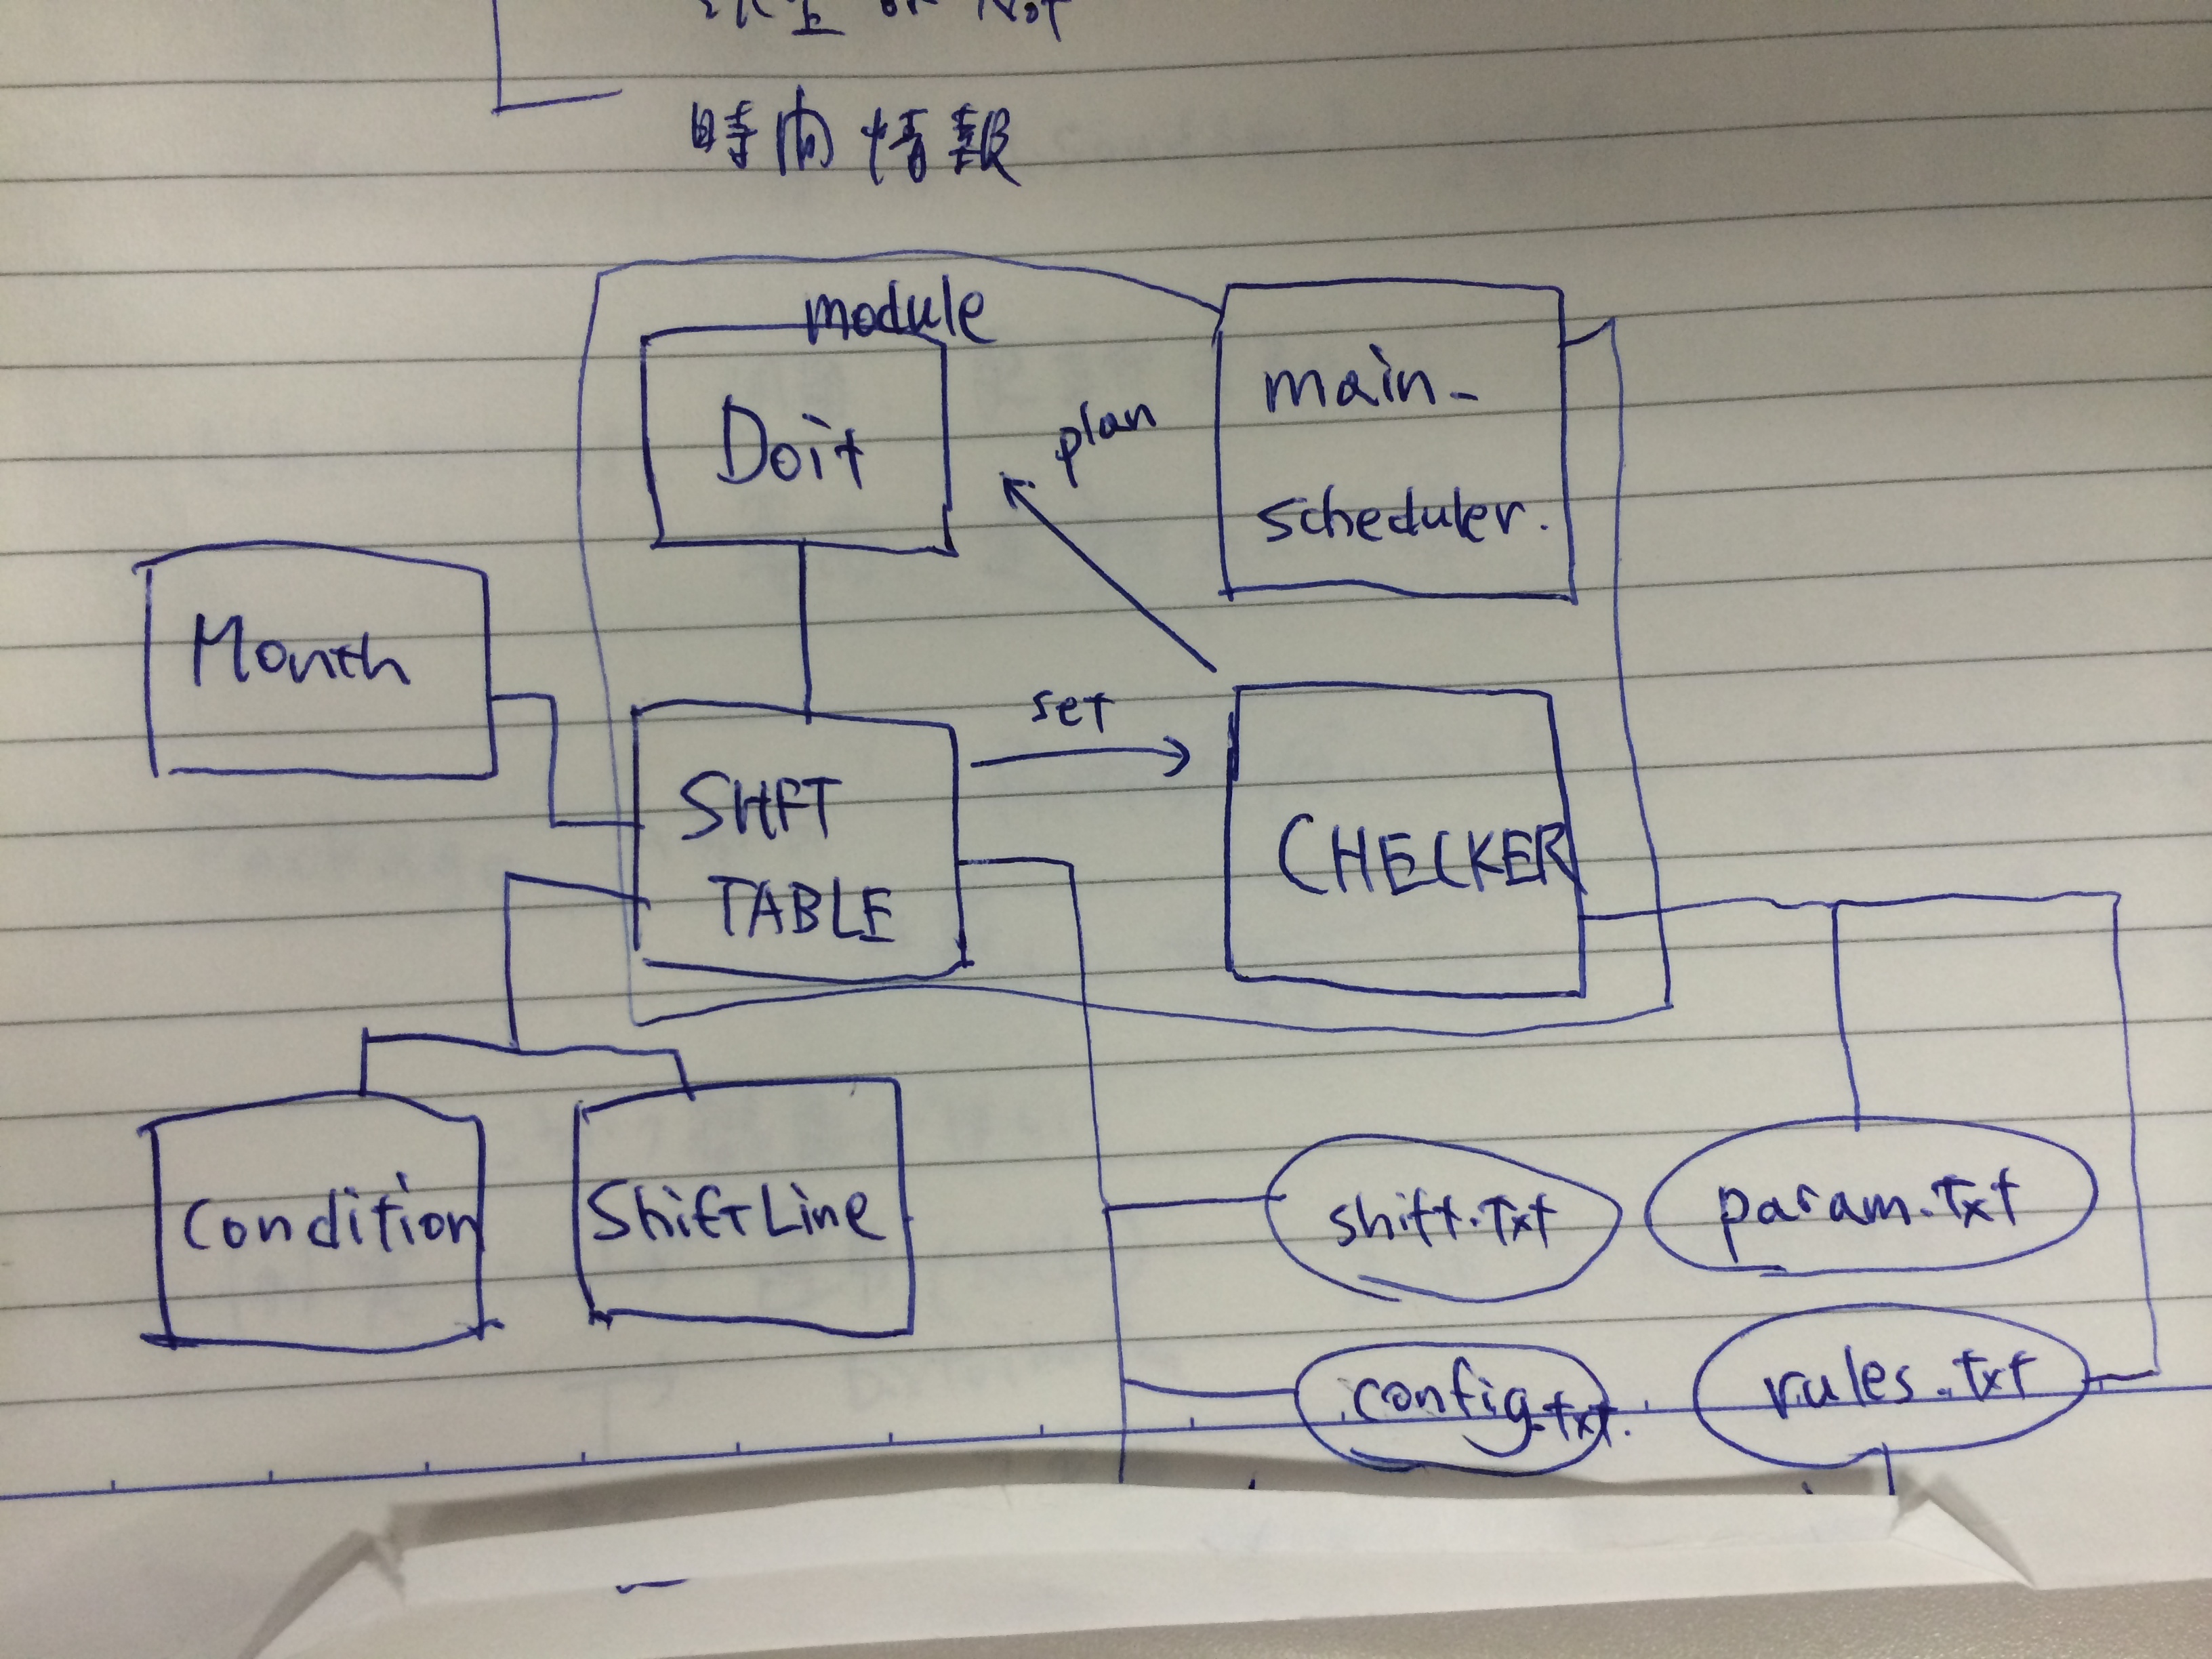 or Not
時間情報
module
Doit
plan
main_
scheduler.
Month
set
SHIFT
TABLE
CHECKER
Condition
ShiftLine
shift.txt
param.txt
config.txt.
rules.txt